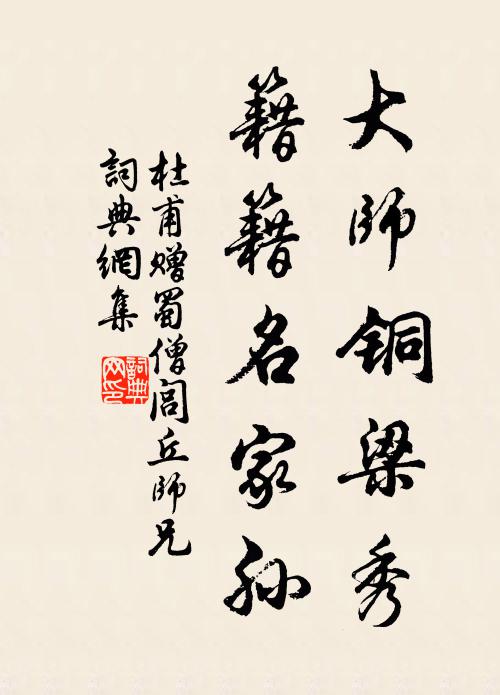 大師銅梁秀
籍籍名家孫
杜甫贈蜀僧閭丘師兄
詞典網集
詞典网印